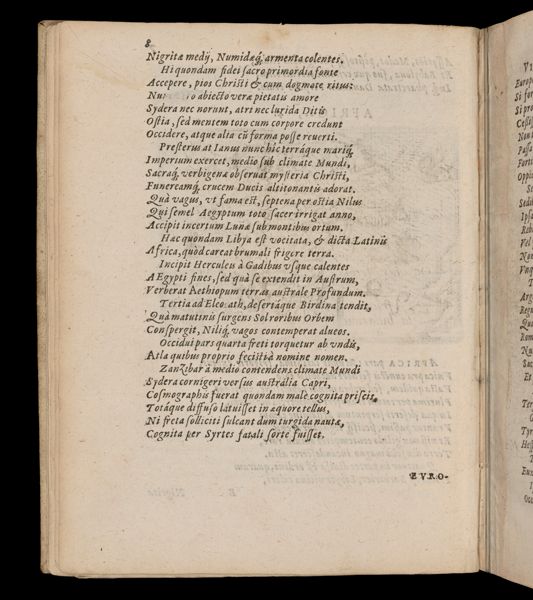 8
Nigritæ medij, Numidæq́; armenta colentes.
Hi quondam fidei sacro primordia fonte
Accepere, pios Christi & cum dogmate ritus:
abiecto veræ pietatis amore
Sydera nec norunt, atri nec lurida Ditis
Ostia, sed mentem toto cum corpore credunt
Occidere, atque alia cũ forma posse reuerti.
Presterus at Ianus nunc hic terráque mariq́;
Imperium exercet, medio sub climate Mundi,
Sacraq́; verbigenæ obseruat mysteria Christi,
Funereamq́; crucem Ducis altitonantis adorat.
Quà vagus, vt fama est, septena per ostia Nilus
Qui semel Aegyptum toto sacer irrigat anno,
Accipit incertum Lunæ sub montibus ortum.
Hac quondam Libya est vocitata, & dicta Latinis
Africa, quòd careat brumali frigore terra.
Incipit Herculeis à Gadibus vsque calentes
AEgypti fines, sed quà se extendit in Austrum,
Verberat Aethiopum terras australe Profundum.
Tertia ad Elcoath, desertáque Birdina tendit,
Quà matutinis surgens Sol roribus Orbem
Conspergit, Niliq́; vagos contemperat alueos.
Occidui pars quarta freti torquetur ab vndis,
Atla quibus proprio fecisti à nomine nomen.
Zanzibar à medio contendens climate Mundi
Sydera cornigeri versus australia Capri,
Cosmographis fuerat quondam malè cognita priscis,
Totáque diffuso latuisset in æquore tellus,
Ni freta solliciti sulcant dum turgida nautæ,
Cognita per Syrtes fatali sorte fuisset.
EVRO-